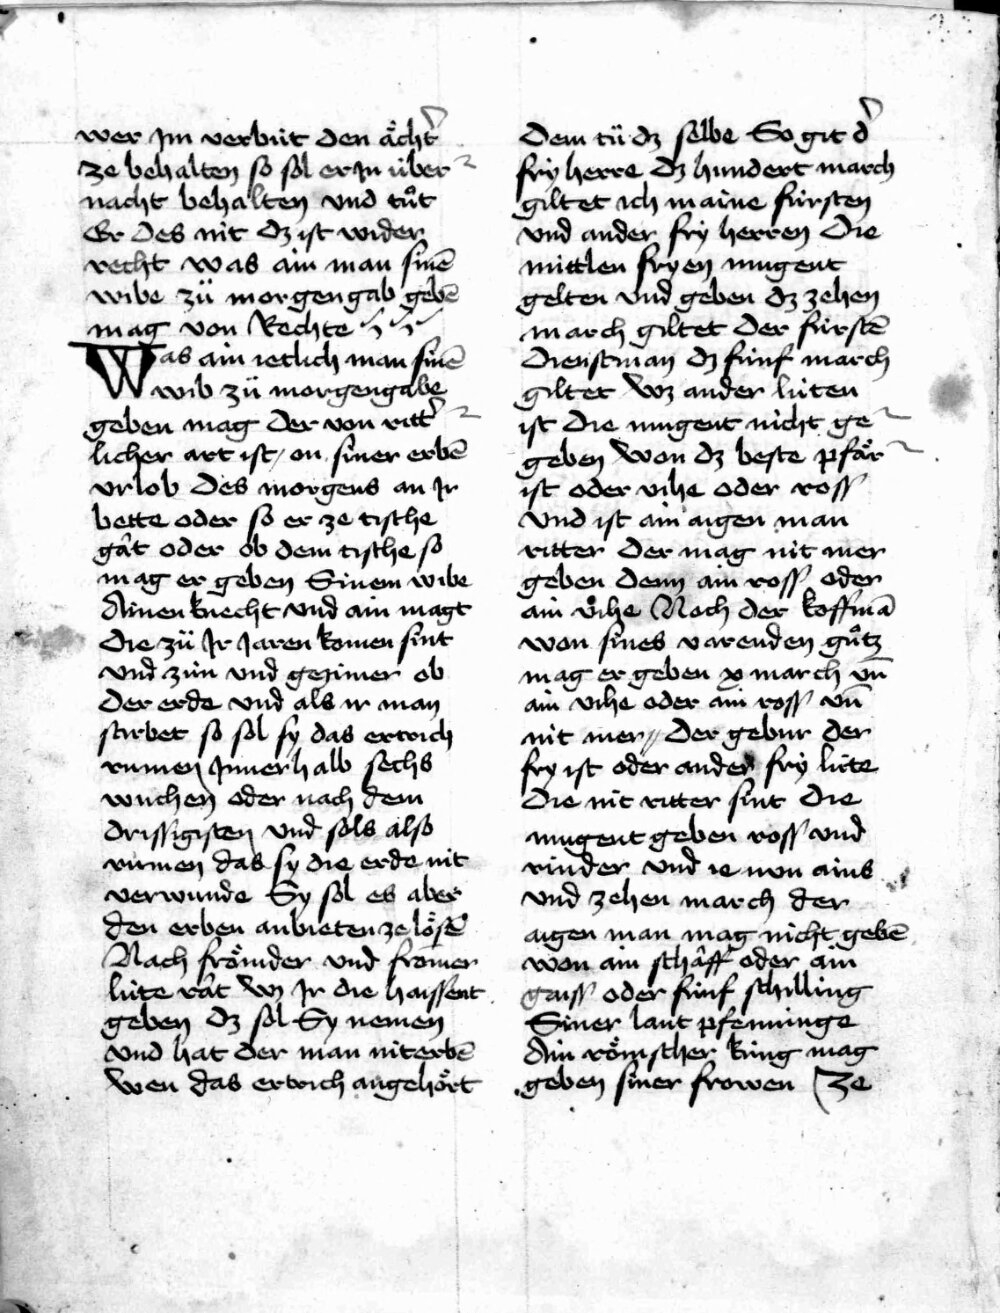 wer im verbüt den ächt͛
ze behalten so sol er in über
nacht behalten vnd tůt
Er des nit dz ist wider
recht was ain man sinē
wibe zü morgengab gebē
mag von Rechte
Was ain ietlich man sinē
wib zü morgengabe
geben mag der von ritt͛
licher art ist / on siner erbē
vrlob des morgens an Ir
bette oder so er ze tische
gât oder ob dem tische so
mag er geben Sinem wibe
Ainen knecht vnd ain magt
die zü Ir Jaren komen sint
vnd zun vnd gezimer ob
der erde vnd als ir man
stirbet so sol sy das ertrich
rumen Jnnerhalb sechs
wuchen oder nach dem
drissigisten vnd sols also
rumen das sy die erde nit
verwunde Sy sol es aber
den erben anbieten ze lösē
Nach frömder vnd fromer
lüte rât wz Ir die haissent
geben dz sol Sy nemen
vnd hat der man nit erbē
wen das ertrich angehört
Dem tü dz selbe So git d͛
fry herre dz hundert march
giltet ich maine fürsten
vnd ander fry herren Die
mittlen fryen mugent
gelten vnd geben dz zehen
march giltet Der fürstē
Dienstman dz fünf march
giltet wz ander lüten
ist die mugent nicht ge
geben won dz beste pfär
ist oder vihe oder ross
vnd ist ain aigen man
ritter Der mag nit mer
geben denn ain ross oder
ain vihe Noch der koffmā
won sines varenden gůtz
mag er geben x march vn̄
ain vihe oder ain ross vn̄
nit mer // Der gebur der
fry ist oder ander fry lüte
Die nit ritter sint die
mugent geben ross vnd
rinder vnd ie nun ains
vnd zehen march der
aigen man mag nicht gebē
won ain schâff oder ain
gaiss oder fünf schilling
Siner lant pfenninge
Ain römscher küng mag
geben siner frowen Ze